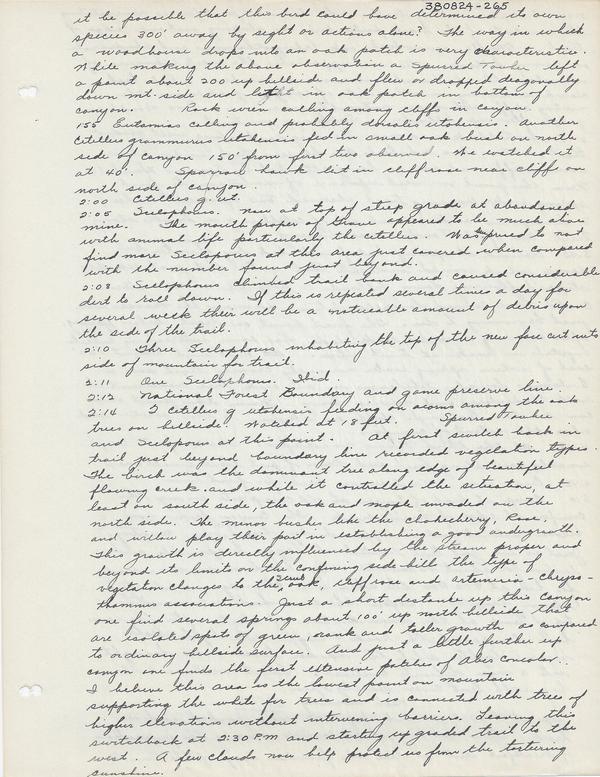 380824-265
it be possible that this bird could have determined its own
species 300' away by sight or actions alone? The way in which
a woodhouse drops into an oak patch is very characteristic.
While making the above observation a Spurred Towhee left
a point about 200 up hillside and flew or dropped deagonally
down mt. side and lit in oak patch in bottom of
canyon. Rock wren calling among cliffs in canyon.
155 Eutamias calling and probably dorsalis utahensis. Another
Citellus grammurus utahensis fed in small oak bush on north
side of canyon 150' from first two observed. We watched it
at 40'. Sparrow hawk lit in cliffrose near cliff on
north side of canyon.
2:00 Citellus g. ut.
2:05 Scelophorus. Now at top of steep grade at abandoned
mine. The mouth proper of Grove appeared to be much alive
with animal life particularly the citellus. Was surprised to not
find more Sceloporus at this area just covered when compared
with the number found just beyond.
2:08 Scelophorus climbed trail bank and caused considerable
dirt to roll down. If this is repeated several times a day for
several week their will be a noticeable amount of debris upon
the side of the trail.
2:10 Three Scelophorus inhabiting the top of the new face cut into
side of mountain for trail.
2:11 One Scelophorus. Ibid.
2:12 National Forest Boundary and game preserve line.
2:14 2 Citellus g utahensis feeding on acorns among the oak
trees on hillside. Watched at 18 feet. Spurred Towhee
and Sceloporus at this point. At first switch back in
trail just beyond boundary line recorded vegetation types.
The birch was the dominant tree along edge of beautiful
flowing creek and while it controlled the situation, at
least on south side, the oak and maple invaded on the
north side. The minor bushes like the chokecherry, Rose,
and willow play their part in establishing a good undergrowth.
This growth is directly influenced by the stream proper and
beyond its limits or the confining side hill the type of
vegetation changes to the scrub oak, cliffrose and artemisia-chryso-
thamnus associations. Just a short distance up this canyon
one find several springs about 100' up north hillside that
are isolated spots of green, rank and taller growth as compared
to ordinary hillside surface. And just a little further up
canyon one finds the first extensive patches of Abies concolor..
I believe this area is the lowest point on mountain
supporting the white fir trees and is connected with trees of
higher elevations without intervening barriers. Leaving this
switchback at 2:30 P.M and starting up graded trail to the
west. A few clouds now help protect us from the torturing
sunshine.